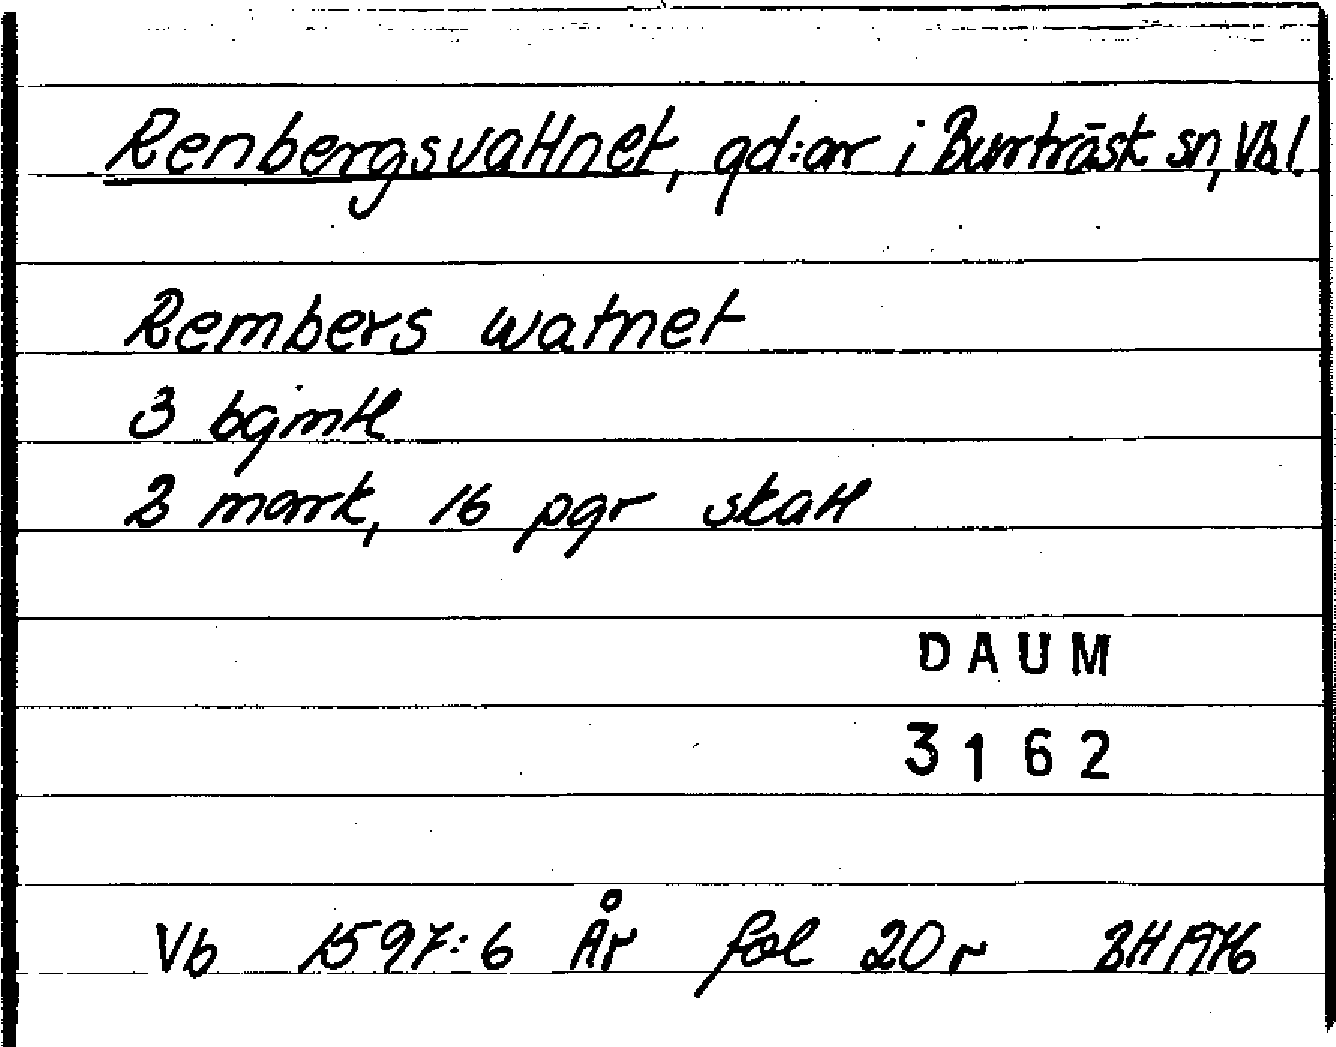 Renbergsvattnet, gd:ar i Burträsk sn, Vb l.
Rembers watnet
3 bgmtl
2 mark, 16 pgr skatt
DAUM
3162
Vb 1597:6 År fol 20 r BH 1976